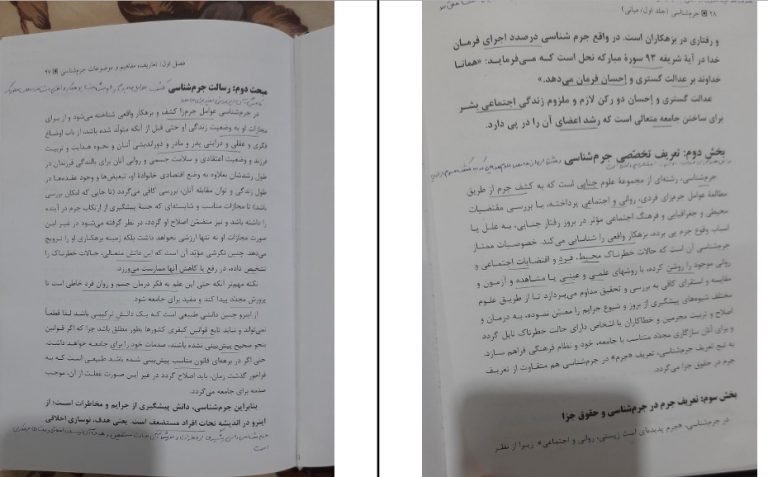 فصل اول: تعاریف، مفاهیم و موضوعات جرم‌شناسی ۴۷
مبحث دوم: رسالت جرم‌شناسی
در جرم‌شناسی عوامل جرم‌زا کشف و بزهکار واقعی شناخته می‌شود و از برای
مجازات او به وضعیت زندگی او حتی قبل از آنکه متولد شده باشد، از باب اوضاع
فکری و عقلی و دراینی پدر و مادر و دوراندیشی آنان و نحوه هدایت و تربیت
فرزند و وضعیت اعتقادی و سلامت جسمی و روانی آنان برای بالندگی فرزندان در
طول رشدشان بعلاوه به وضع اقتصادی خانوادهٔ او، تبعیض‌ها و وجود عقده‌ها در
طول زندگی و توان مقابله آنان، بررسی کافی می‌گردد (تا جایی که امکان بررسی
باشد) تا مجازات مناسب و شایسته‌ای که جنبهٔ پیشگیری از ارتکاب جرم در آینده
را داشته باشد و نیز متضمّن اصلاح او گردد، در نظر گرفته می‌شود در غیر این
صورت مجازات او نه تنها ارزشی نخواهد داشت بلکه زمینه بزهکاری او را ترویج
می‌دهد. چنین نگرشی مؤید آن است که این دانش متعالی، حالات خطرناک را
تشخیص داده، در رفع یا کاهش آنها ممارست می‌ورزد.
نکته مهم‌تر آنکه حتی این علم به فکر درمان جسم و روان فرد خاطی است تا
پرورش مجدّد پیدا کند و مفید برای جامعه شود.
از اینرو چنین دانشی طبیعی است که یک دانش ترکیبی باشد. لذا قطعاً
نمی‌تواند و نباید تابع قوانین کیفری کشورها بطور مطلق باشد چرا که اگر قوانین
بنحو صحیح پیش‌بینی نشده باشند، صدمات خود را برای جامعه خواهند داشت.
حتی اگر در برهه‌ای قانون مناسب پیش‌بینی شده باشد طبیعی است که به
فراخور گذشت زمان، باید اصلاح گردد در غیر این صورت غفلت از آن، موجب
صدمه برای جامعه می‌گردد.
بنابراین جرم‌شناسی، دانش پیشگیری از جرایم و مخاطرات است؛ از
اینرو در اندیشه نجات افراد مستضعف است. یعنی هدف، نوسازی اخلاقی
۴۸ جرم‌شناسی (جلد اول/ مبانی)
و رفتاری در بزهکاران است. در واقع جرم شناسی درصدد اجرای فرمان
خدا در آیهٔ شریفه ۹۳ سورهٔ مبارکه نحل است که می‌فرماید: «همانا
خداوند بر عدالت گستری و إحسان فرمان می‌دهد.»
عدالت گستری و إحسان دو رکن لازم و ملزوم زندگی اجتماعی بشر
برای ساختن جامعه متعالی است که رشد اعضای آن را در پی دارد.
بخش دوم: تعریف تخصّصی جرم‌شناسی
جرم‌شناسی، رشته‌ای از مجموعهٔ علوم جنایی است که به کشف جرم از طریق
مطالعهٔ عوامل جرم‌زای فردی، روانی و اجتماعی پرداخته، با بررسی مقتضیات
محیطی و جغرافیایی و فرهنگ اجتماعی مؤثر در بروز رفتار جنایی، به علل یا
اسباب وقوع جرم پی برده، بزهکار واقعی را شناسایی می‌کند. خصوصیات ممتاز
جرم‌شناسی آن است که حالات خطرناک محیط، فرد و اقتضایات اجتماعی و
روانی موجود را روشن کرده، با روشهای علمی و عینی یا مشاهده و آزمون و
مقایسه و استقرای کافی به بررسی و تحقیق مداوم می‌پردازد تا از طریق علوم
مختلف شیوه‌های پیشگیری از بروز و شیوع جرایم را معیّن نموده، به درمان و
اصلاح و تربیت مجرمین و خطاکاران یا اشخاص دارای حالت خطرناک نایل گردد
و برای آنان سازگاری مجدّد متناسب با جامعه، خود و نظام فرهنگی فراهم سازد.
به تبع تعریف جرم‌شناسی، تعریف «جرم» در جرم‌شناسی هم متفاوت از تعریف
جرم در حقوق جزا می‌گردد.
بخش سوم: تعریف جرم در جرم‌شناسی و حقوق جزا
در جرم‌شناسی، «جرم پدیده‌ای است زیستی، روانی و اجتماعی» زیرا از نظر